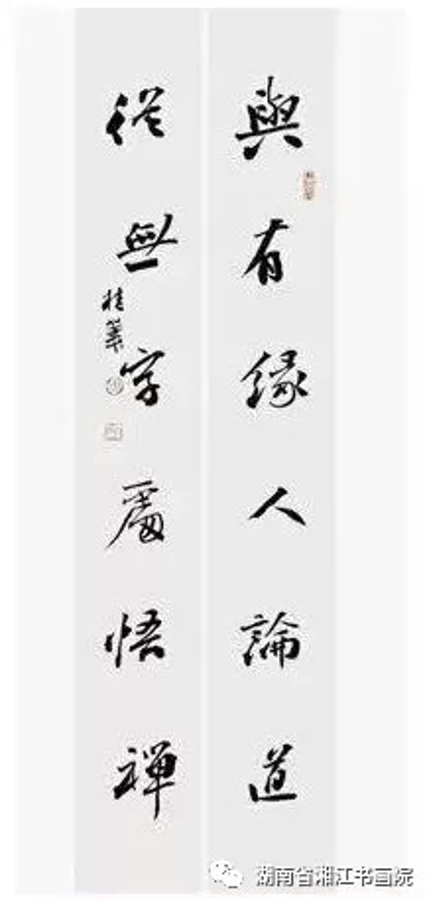 與有緣人論道
從無字處悟禪
湖南省湘江书画院